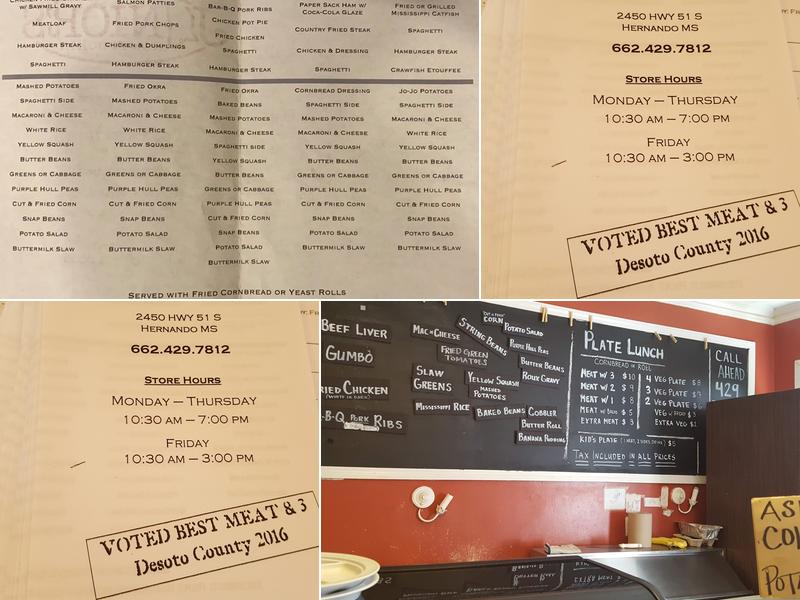 W/ SAWMILL GRAVY
MEATLOAF
HAMBURGER STEAK
SPAGHETTI
SALMON PATTIES
FRIED PORK CHOPS
CHICKEN & DUMPLINGS
HAMBURGER STEAK
BAR-B-Q PORK RIBS
CHICKEN POT PIE
FRIED CHICKEN
SPAGHETTI
HAMBURGER STEAK
PAPER SACK HAM W/
COCA-COLA GLAZE
COUNTRY FRIED STEAK
CHICKEN & DRESSING
SPAGHETTI
FRIED OR GRILLED
MISSISSIPPI CATFISH
SPAGHETTI
HAMBURGER STEAK
CRAWFISH ETOUFFEE
MASHED POTATOES
SPAGHETTI SIDE
MACARONI & CHEESE
WHITE RICE
YELLOW SQUASH
BUTTER BEANS
GREENS OR CABBAGE
PURPLE HULL PEAS
CUT & FRIED CORN
SNAP BEANS
POTATO SALAD
BUTTERMILK SLAW
FRIED OKRA
MASHED POTATOES
MACARONI & CHEESE
WHITE RICE
YELLOW SQUASH
BUTTER BEANS
GREENS OR CABBAGE
PURPLE HULL PEAS
CUT & FRIED CORN
SNAP BEANS
POTATO SALAD
BUTTERMILK SLAW
FRIED OKRA
BAKED BEANS
MASHED POTATOES
MACARONI & CHEESE
SPAGHETTI SIDE
YELLOW SQUASH
BUTTER BEANS
GREENS OR CABBAGE
PURPLE HULL PEAS
CUT & FRIED CORN
SNAP BEANS
POTATO SALAD
BUTTERMILK SLAW
CORNBREAD DRESSING
SPAGHETTI SIDE
MASHED POTATOES
MACARONI & CHEESE
YELLOW SQUASH
BUTTER BEANS
GREENS OR CABBAGE
PURPLE HULL PEAS
CUT & FRIED CORN
SNAP BEANS
POTATO SALAD
BUTTERMILK SLAW
JO-JO POTATOES
SPAGHETTI SIDE
MACARONI & CHEESE
WHITE RICE
YELLOW SQUASH
BUTTER BEANS
GREENS OR CABBAGE
PURPLE HULL PEAS
CUT & FRIED CORN
SNAP BEANS
POTATO SALAD
BUTTERMILK SLAW
SERVED WITH FRIED CORNBREAD OR YEAST ROLLS
2450 HWY 51 S
HERNANDO MS
662.429.7812
STORE HOURS
MONDAY – THURSDAY
10:30 AM – 7:00 PM
FRIDAY
10:30 AM – 3:00 PM
VOTED BEST MEAT & 3
Desoto County 2016
2450 HWY 51 S
HERNANDO MS
662.429.7812
STORE HOURS
MONDAY – THURSDAY
10:30 AM – 7:00 PM
FRIDAY
10:30 AM – 3:00 PM
VOTED BEST MEAT & 3
Desoto County 2016
BEEF LIVER
GUMBO
FRIED CHICKEN
B-B-Q PORK RIBS
MAC N CHEESE
STRING BEANS
CORN
POTATO SALAD
PURPLE HULL PEAS
FRIED GREEN
TOMATOES
BUTTER BEANS
ROUX GRAVY
SLAW
GREENS
YELLOW SQUASH
MASHED
POTATOES
MISSISSIPPI RICE
BAKED BEANS
COBBLER
BUTTER ROLL
BANANA PUDDING
PLATE LUNCH
CORNBREAD OR ROLL
MEAT W/ 3 $10
MEAT W/ 2 $9
MEAT W/ 1 $8
EXTRA MEAT $3
4 VEG PLATE $8
3 VEG PLATE
2 VEG PLATE
EXTRA VEG
KID'S PLATE
$5
TAX INCLUDED IN ALL PRICES
CALL
AHEAD
429